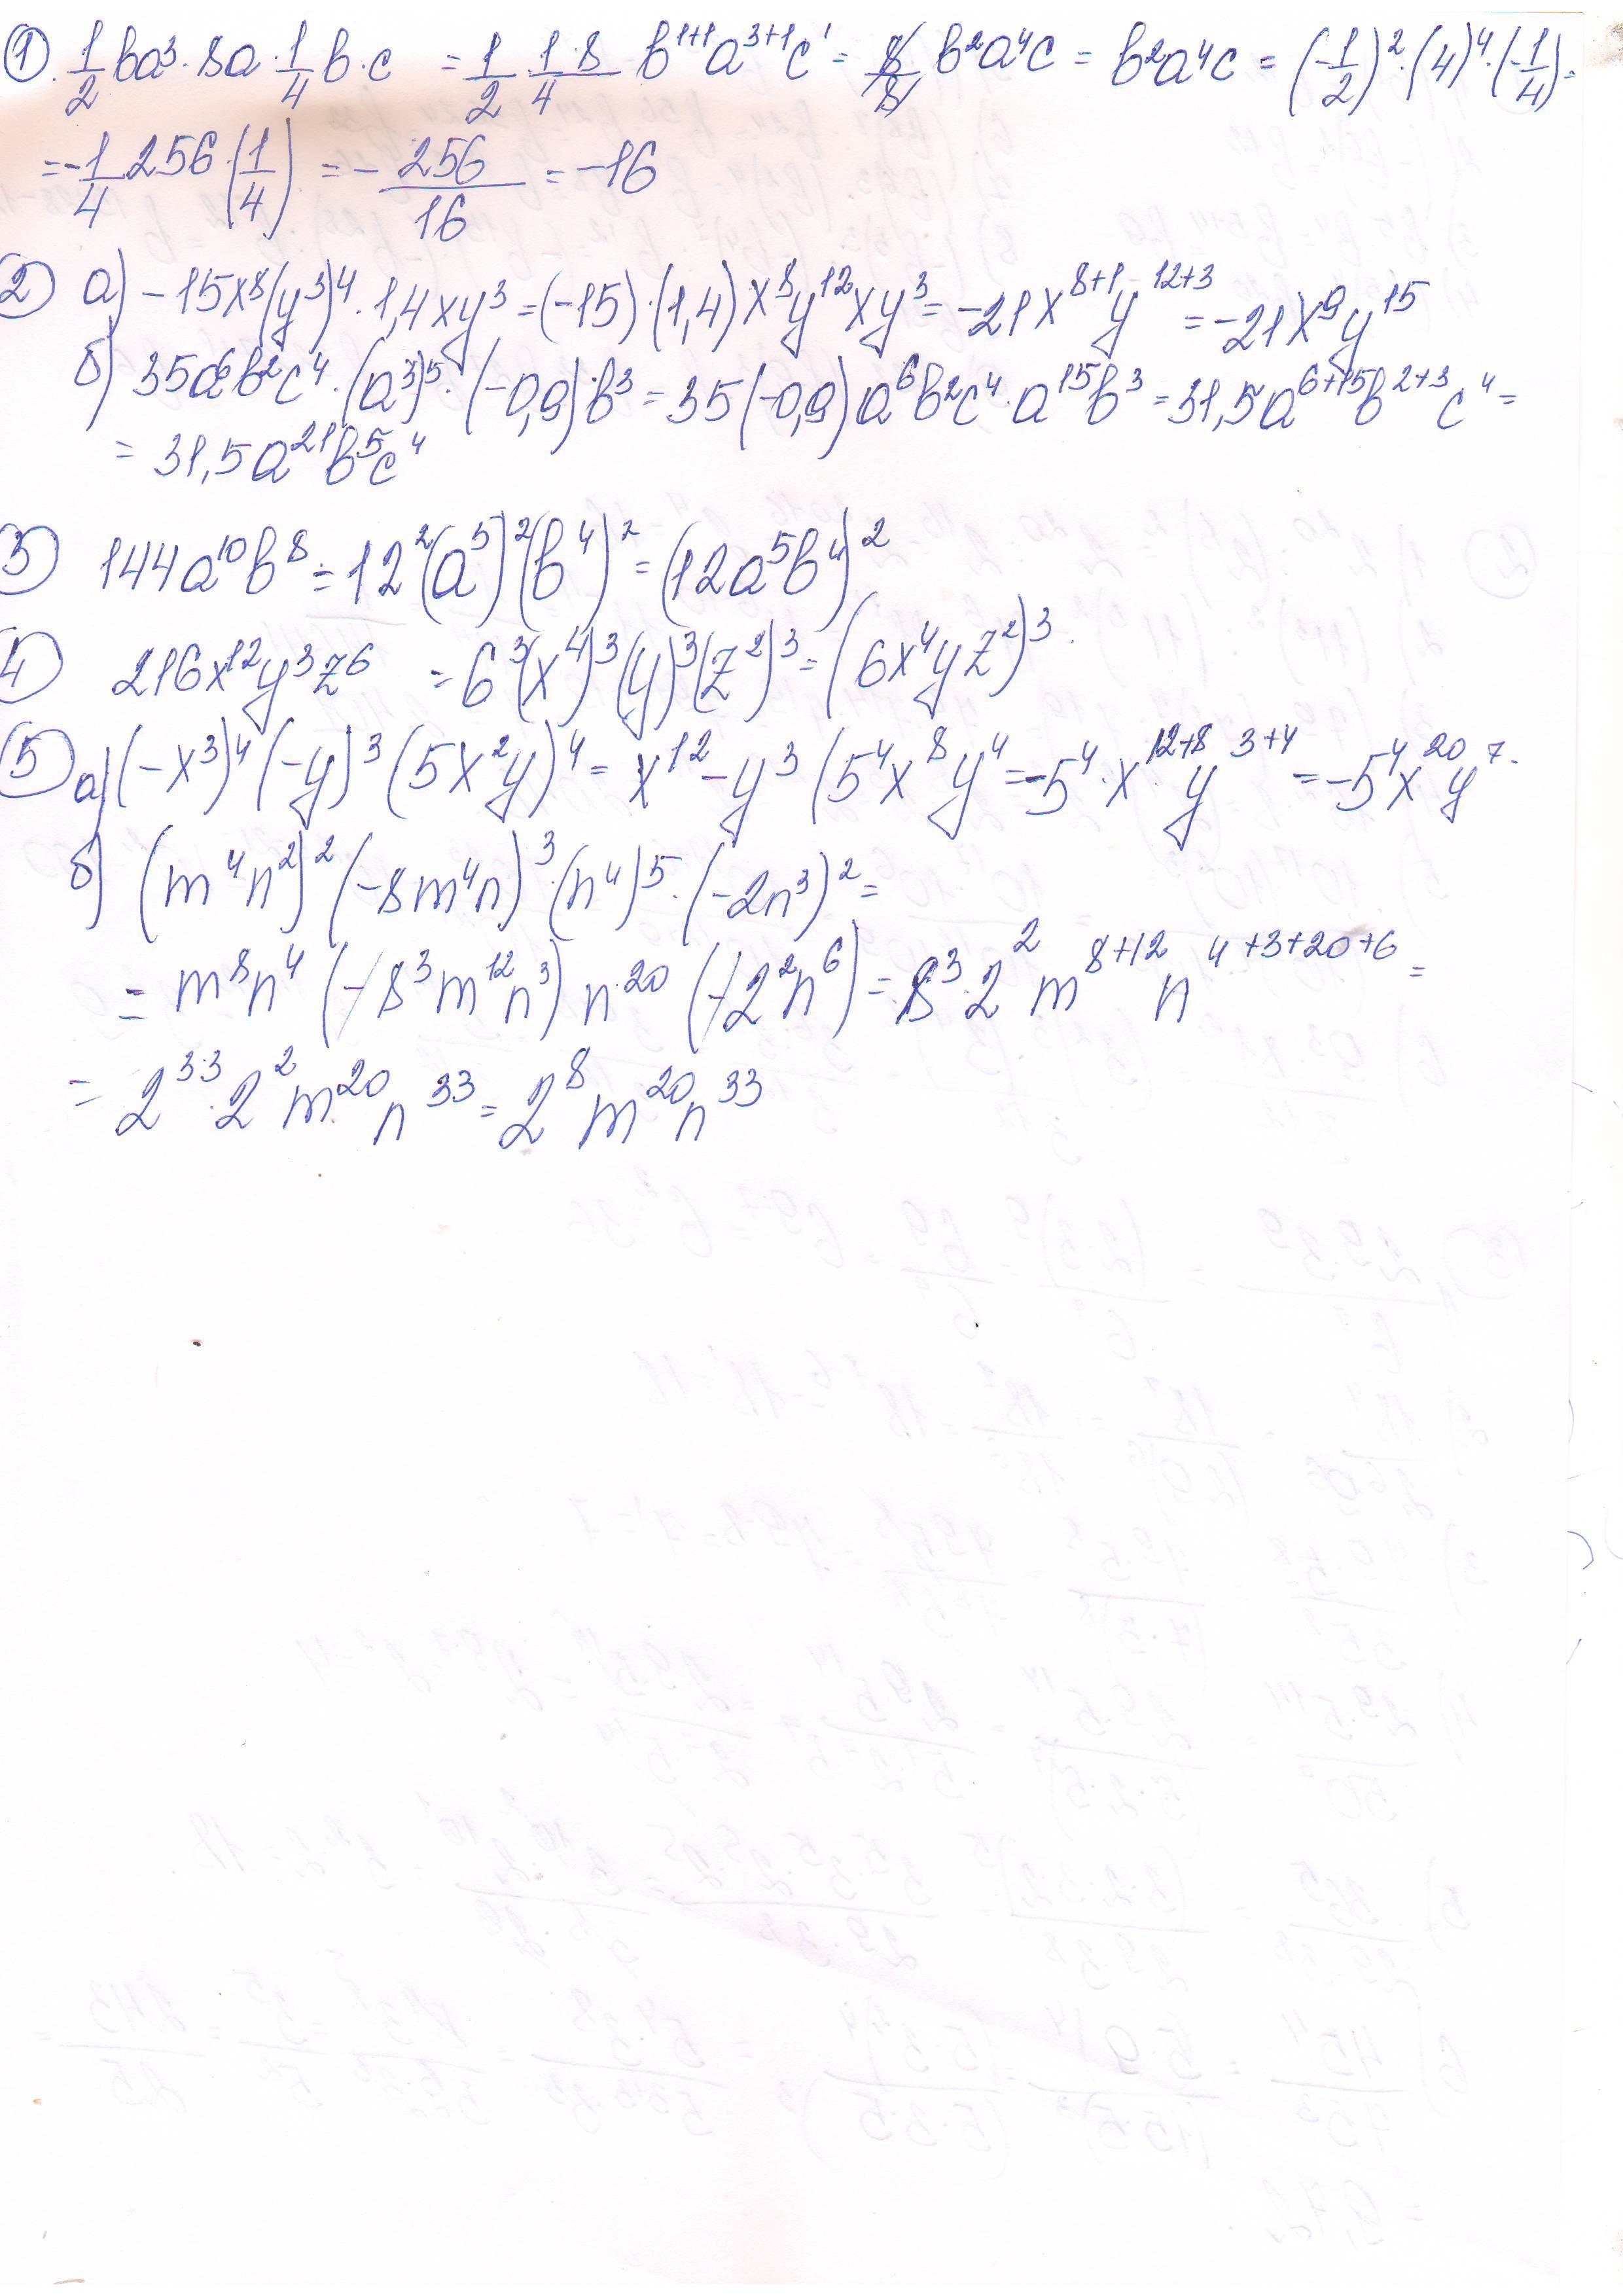 ① 1/2 ba³ · 8a · 1/4 b · c = 1/2 · 1/4 · 8 b¹⁺¹a³⁺¹c¹ = 8/8 b²a⁴c = b²a⁴c = (-1/2)² · (4)⁴ · (-1/4) =
= -1/4 256 · (1/4) = - 256/16 = -16
② а) -15x⁸(y³)⁴ · 1,4xy³ = (-15) · (1,4) x⁸y¹²xy³ = -21x⁸⁺¹y¹²⁺³ = -21x⁹y¹⁵
б) 35a⁶b²c⁴ · (a³)⁵ · (-0,9) · b³ = 35(-0,9)a⁶b²c⁴ · a¹⁵b³ = 31,5a⁶⁺¹⁵b²⁺³c⁴ =
= 31,5a²¹b⁵c⁴
③ 144a¹⁰b⁸ = 12²(a⁵)²(b⁴)² = (12a⁵b⁴)²
④ 216x¹²y³z⁶ = 6³(x⁴)³(y)³(z²)³ = (6x⁴yz²)³.
⑤ а) (-x³)⁴(-y)³(5x²y)⁴ = x¹² - y³(5⁴x⁸y⁴ = -5⁴ · x¹²⁺⁸y³⁺⁴ = -5⁴x²⁰y⁷.
б) (m⁴n²)²(-8m⁴n)³ · (n⁴)⁵ · (-2n³)² =
= m⁸n⁴(-8³m¹²n³)n²⁰(-2²n⁶) = 8³ · 2² m⁸⁺¹²n⁴⁺³⁺²⁰⁺⁶ =
= 2³·³ · 2²m²⁰n³³ = 2⁸m²⁰n³³